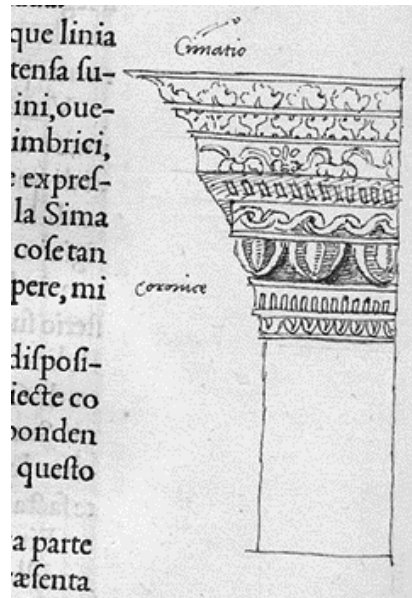 que linia
tenſa ſu-
ini, oue-
imbrici,
expreſ-
la Sima
coſe tan
pere, mi
diſpoſi-
iecte co
ponden
queſto
a parte
æſenta
Cimatio
coronice